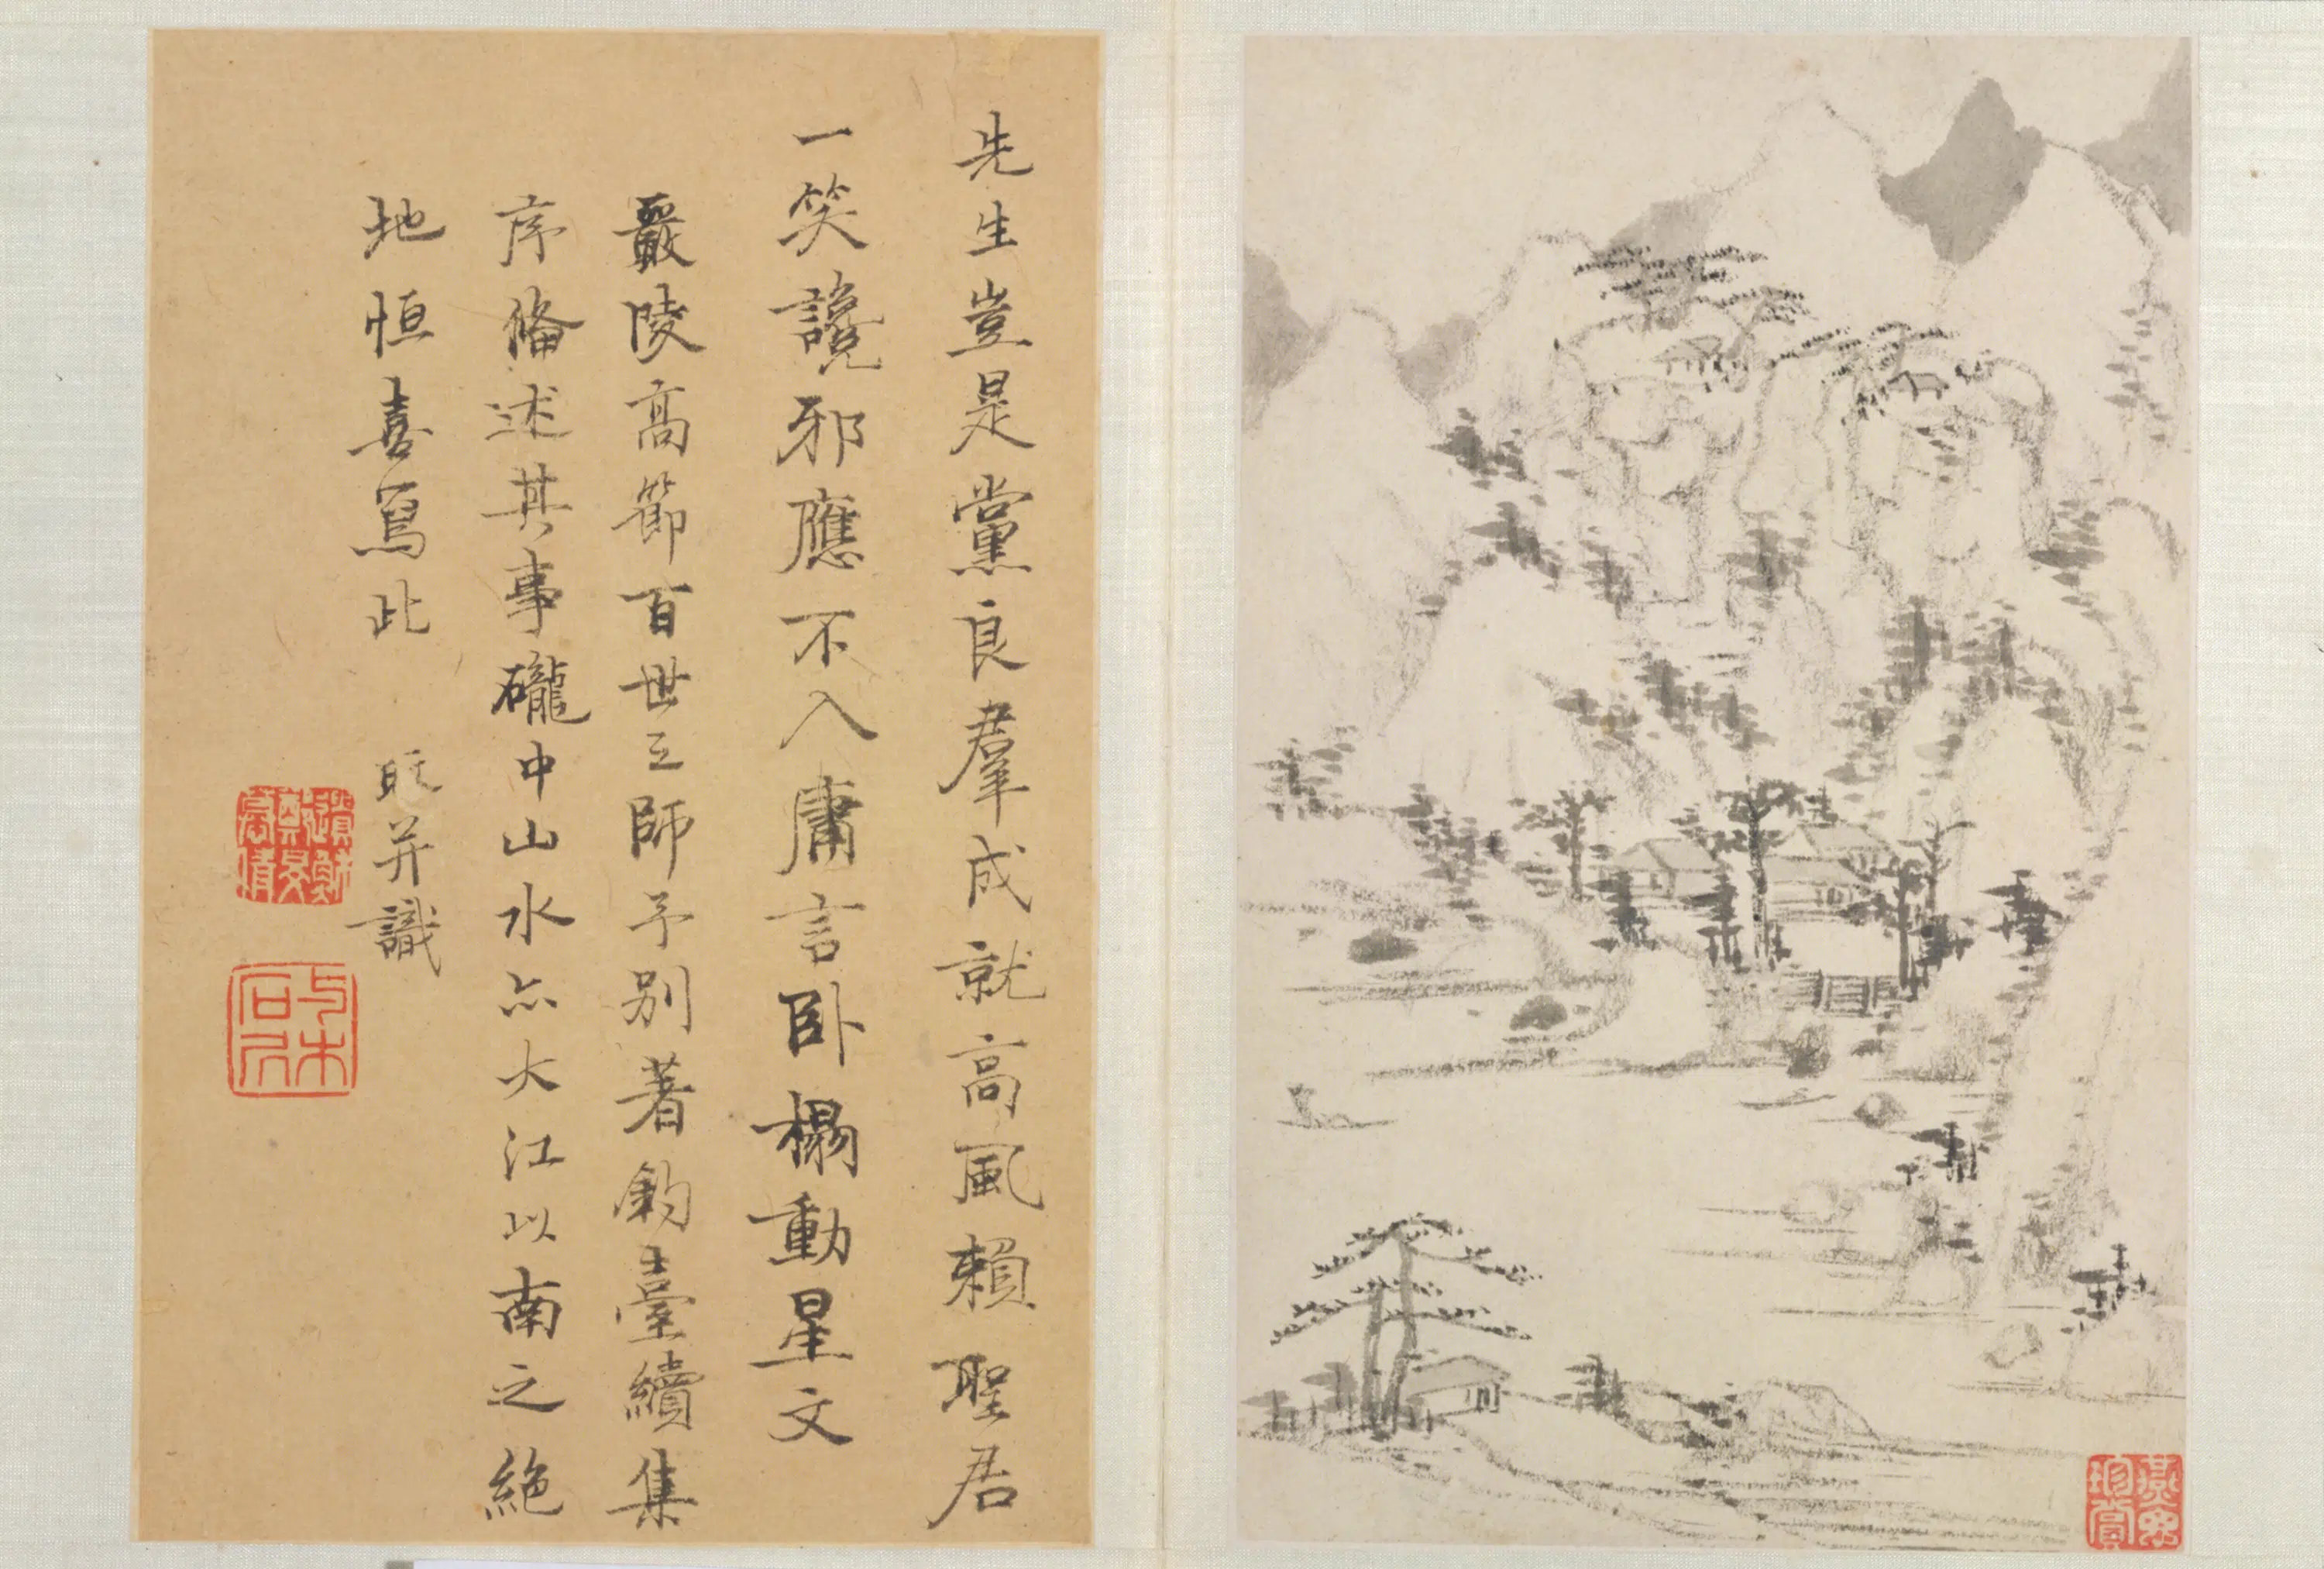 先生豈是黨良羣成就高風賴聖君
一笑讒邪應不入庸言臥榻動星文
嚴陵高節百世立師予別著釣臺續集
序俻述其事瀧中山水亦大江以南之絕
地恒喜寫此 旺并識
與木
石居